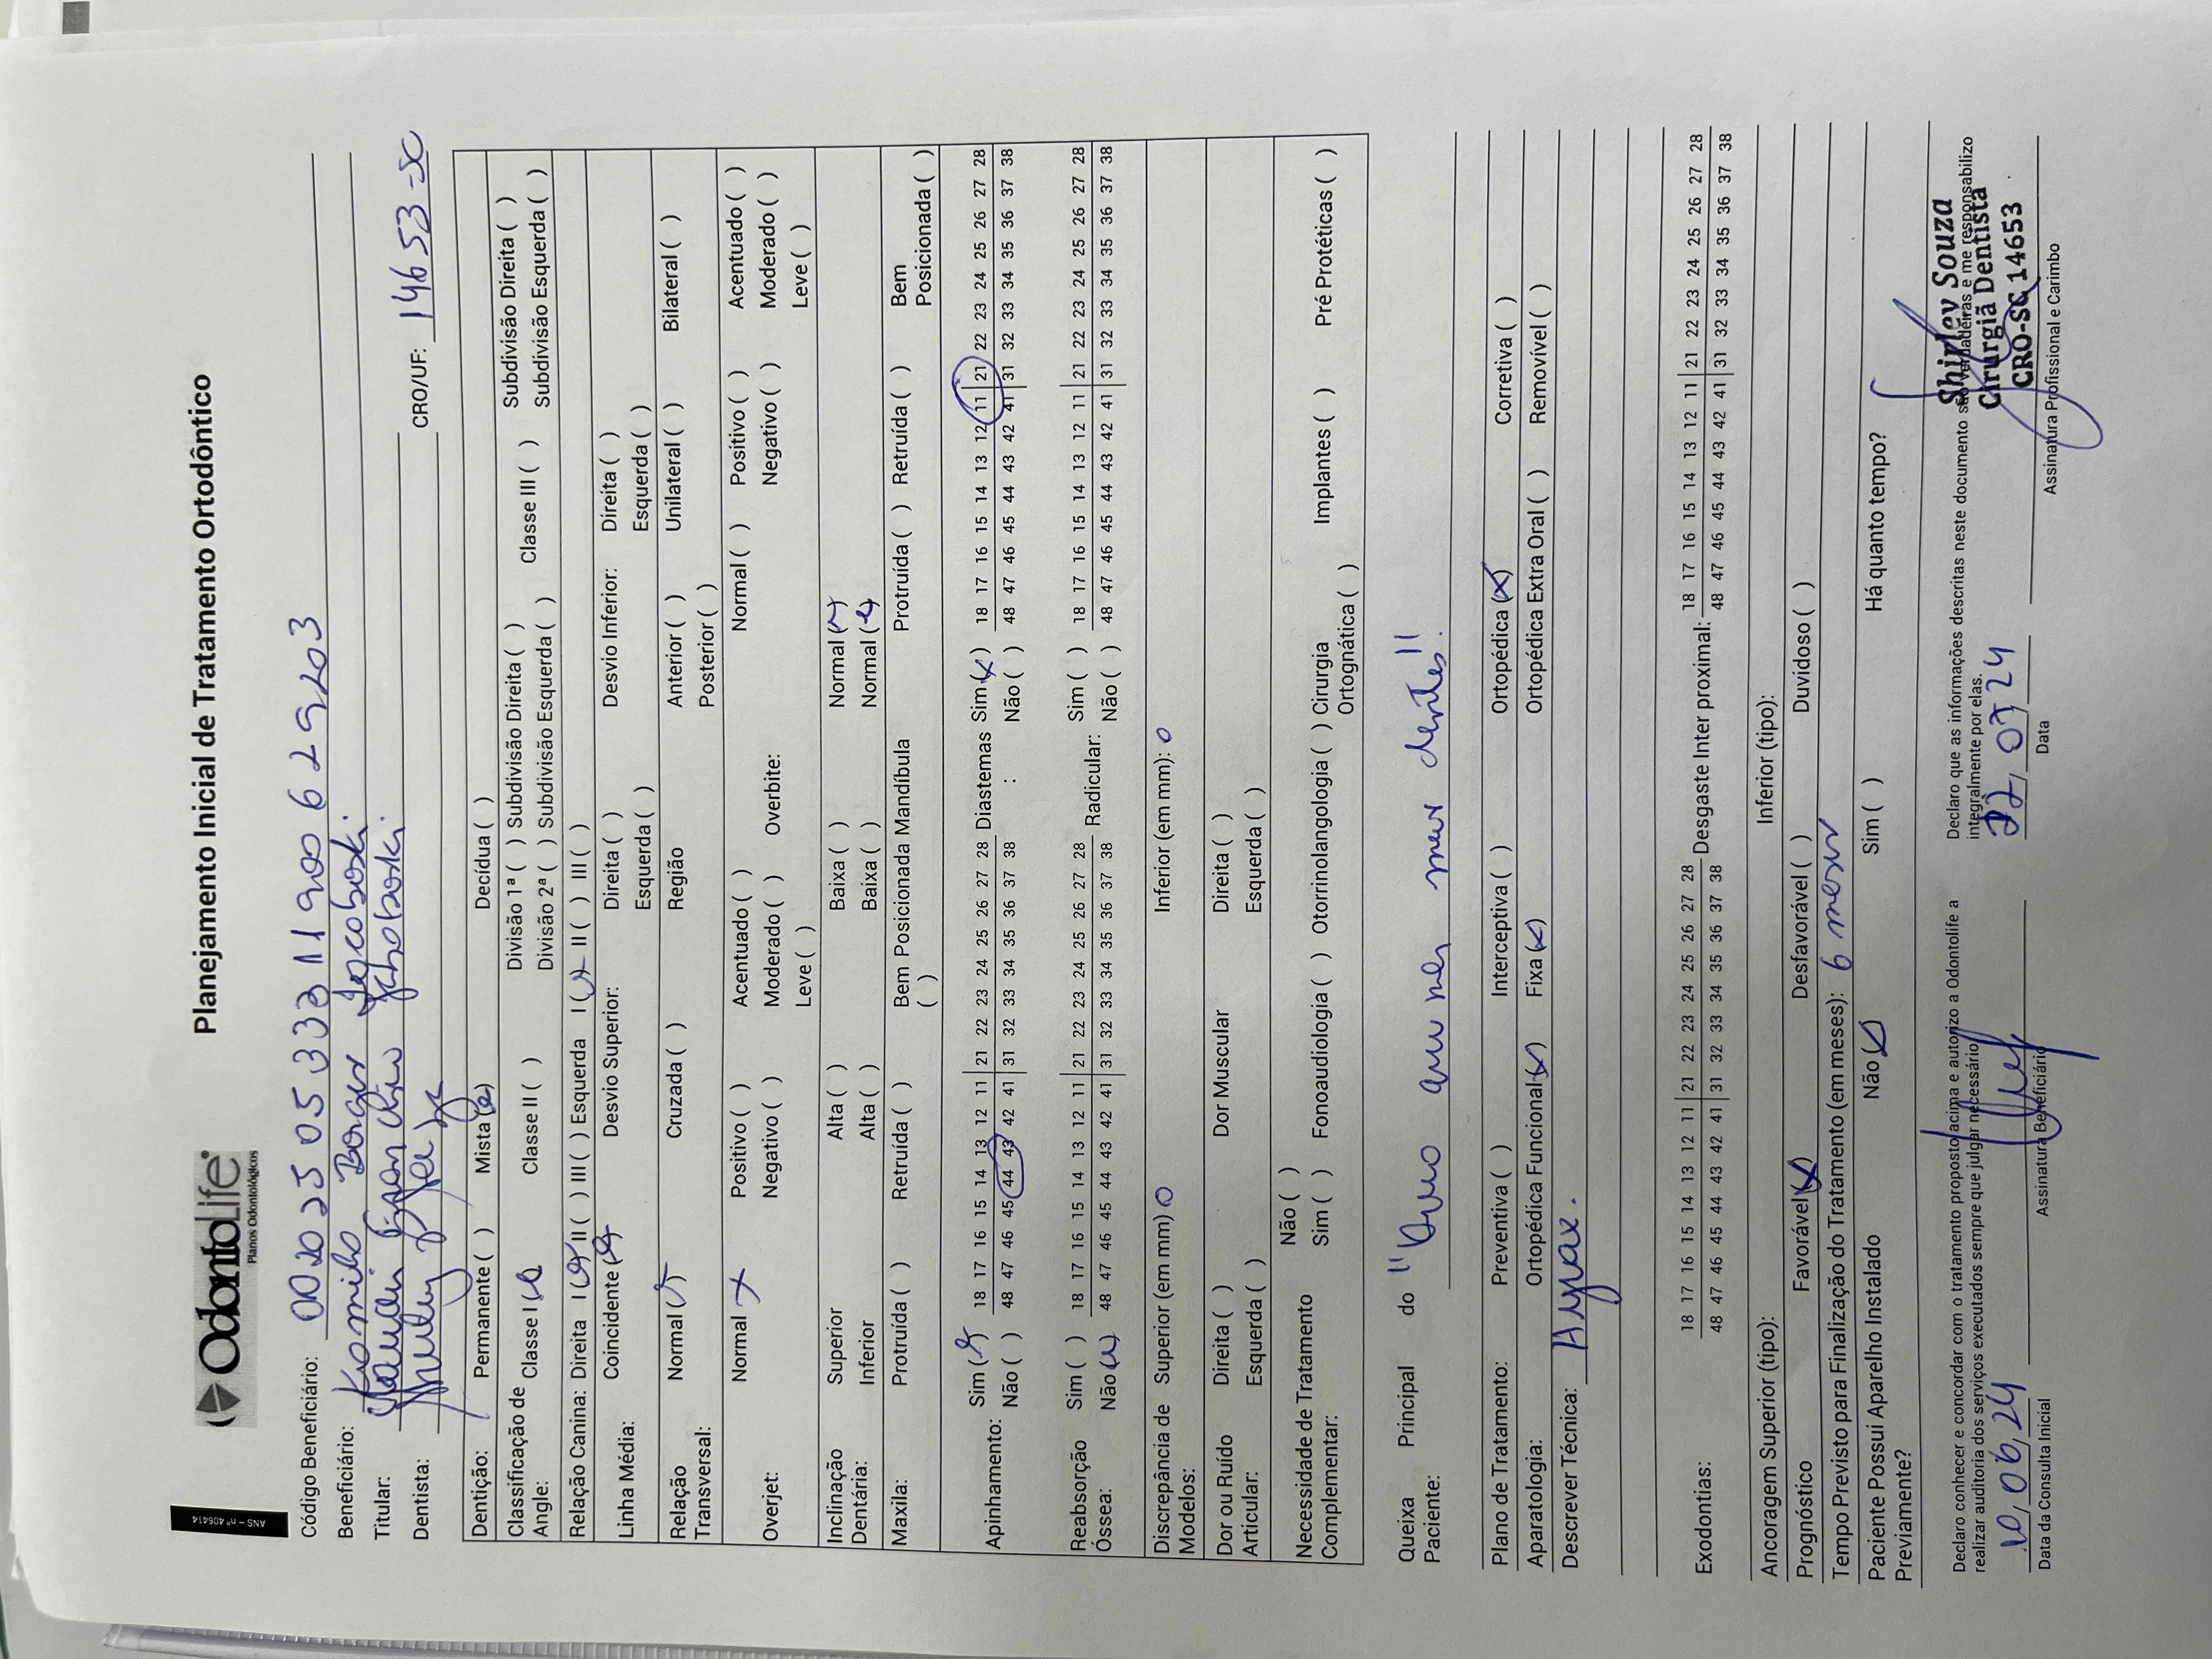 ANS - nº 406414
OdontoLife
Planos Odontológicos
Planejamento Inicial de Tratamento Ortodôntico
Código Beneficiário: 00202505333119006 29203
Beneficiário: Borges Jacoboski
Titular:
Dentista: CRO/UF: 14653-SC
Dentição: Permanente ( ) Mista (x) Decídua ( )
Classificação de Angle: Classe I (x) Classe II ( ) Divisão 1ª ( ) Subdivisão Direita ( ) Classe III ( ) Subdivisão Direita ( )
Divisão 2ª ( ) Subdivisão Esquerda ( ) Subdivisão Esquerda ( )
Relação Canina: Direita I (x) II ( ) III ( ) Esquerda I (x) II ( ) III ( )
Linha Média: Coincidente (x) Desvio Superior: Direita ( ) Desvio Inferior: Direita ( )
Esquerda ( ) Esquerda ( )
Relação Transversal: Normal (x) Cruzada ( ) Região Anterior ( ) Unilateral ( ) Bilateral ( )
Posterior ( )
Overjet: Normal x Positivo ( ) Acentuado ( ) Overbite: Normal ( ) Positivo ( ) Acentuado ( )
Negativo ( ) Moderado ( ) Negativo ( ) Moderado ( )
Leve ( ) Leve ( )
Inclinação Dentária: Superior Alta ( ) Baixa ( ) Normal (x)
Inferior Alta ( ) Baixa ( ) Normal (x)
Maxila: Protruída ( ) Retruída ( ) Bem Posicionada ( ) Mandíbula Protruída ( ) Retruída ( ) Bem Posicionada ( )
Apinhamento: Sim (x) 18 17 16 15 14 13 12 11 | 21 22 23 24 25 26 27 28 Diastemas : Sim (x) 18 17 16 15 14 13 12 11 | 21 22 23 24 25 26 27 28
Não ( ) 48 47 46 45 44 43 42 41 | 31 32 33 34 35 36 37 38 Não ( ) 48 47 46 45 44 43 42 41 | 31 32 33 34 35 36 37 38
Reabsorção Óssea: Sim ( ) 18 17 16 15 14 13 12 11 | 21 22 23 24 25 26 27 28 Radicular: Sim ( ) 18 17 16 15 14 13 12 11 | 21 22 23 24 25 26 27 28
Não (x) 48 47 46 45 44 43 42 41 | 31 32 33 34 35 36 37 38 Não ( ) 48 47 46 45 44 43 42 41 | 31 32 33 34 35 36 37 38
Discrepância de Modelos: Superior (em mm) 0 Inferior (em mm): 0
Dor ou Ruído Articular: Direita ( ) Dor Muscular Direita ( )
Esquerda ( ) Esquerda ( )
Necessidade de Tratamento Complementar: Não ( )
Sim ( ) Fonoaudiologia ( ) Otorrinolangologia ( ) Cirurgia Ortognática ( ) Implantes ( ) Pré Protéticas ( )
Queixa Principal do Paciente: " meus dentes"
Plano de Tratamento: Preventiva ( ) Interceptiva ( ) Ortopédica (x) Corretiva ( )
Aparatologia: Ortopédica Funcional (x) Fixa (x) Ortopédica Extra Oral ( ) Removível ( )
Descrever Técnica: Hyrax.
Exodontias: 18 17 16 15 14 13 12 11 | 21 22 23 24 25 26 27 28 Desgaste Inter proximal: 18 17 16 15 14 13 12 11 | 21 22 23 24 25 26 27 28
48 47 46 45 44 43 42 41 | 31 32 33 34 35 36 37 38 48 47 46 45 44 43 42 41 | 31 32 33 34 35 36 37 38
Ancoragem Superior (tipo): Inferior (tipo):
Prognóstico Favorável (x) Desfavorável ( ) Duvidoso ( )
Tempo Previsto para Finalização do Tratamento (em meses): 6 meses
Paciente Possuí Aparelho Instalado Previamente? Não (x) Sim ( ) Há quanto tempo?
Declaro conhecer e concordar com o tratamento proposto acima e autorizo a Odontolife a
realizar auditoria dos serviços executados sempre que julgar necessário
Declaro que as informações descritas neste documento são verdadeiras e me responsabilizo
integralmente por elas.
Shirley Souza
Cirurgiã Dentista
CRO-SC 14653
10,06,24
22,07,24
Data da Consulta Inicial
Assinatura Beneficiário
Data
Assinatura Profissional e Carimbo